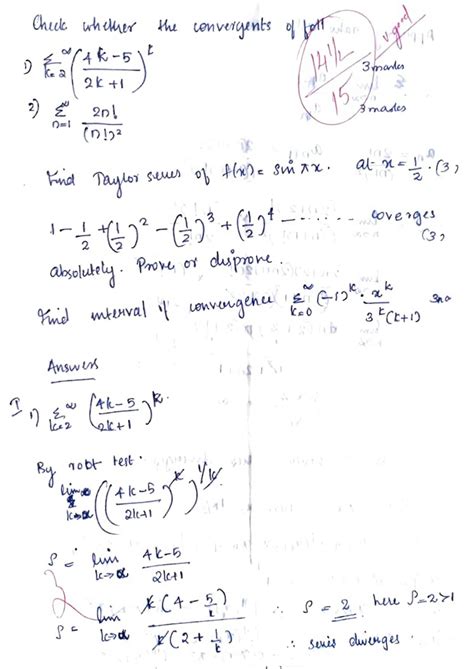 Check whether the convergents of foll
14 1/2 / 15 v.good
1) ∑_{k=2}^{∞} ((4k-5)/(2k+1))^k 3 marks
2) ∑_{n=1}^{∞} 2n!/(n!)² 3 marks
Find Taylor series of f(x) = sin πx. at x = 1/2. (3,
1 - 1/2 + (1/2)² - (1/2)³ + (1/2)⁴ - ....... coverges
(3,
absolutely. Prove or disprove.
Find interval of convergence ∑_{k=0}^{∞} (-1)^k · x^k/(3^k(k+1))
Answers
I 1) ∑_{k=2}^{∞} ((4k-5)/(2k+1))^k.
By root test.
lim_{k→∞} (((4k-5)/(2k+1))^k)^{1/k}
ρ = lim_{k→∞} (4k-5)/(2k+1)
3
ρ = lim_{k→∞} k(4 - 5/k)/k(2 + 1/k) ∴ ρ = 2, here ρ=2>1
∴ series diverges.